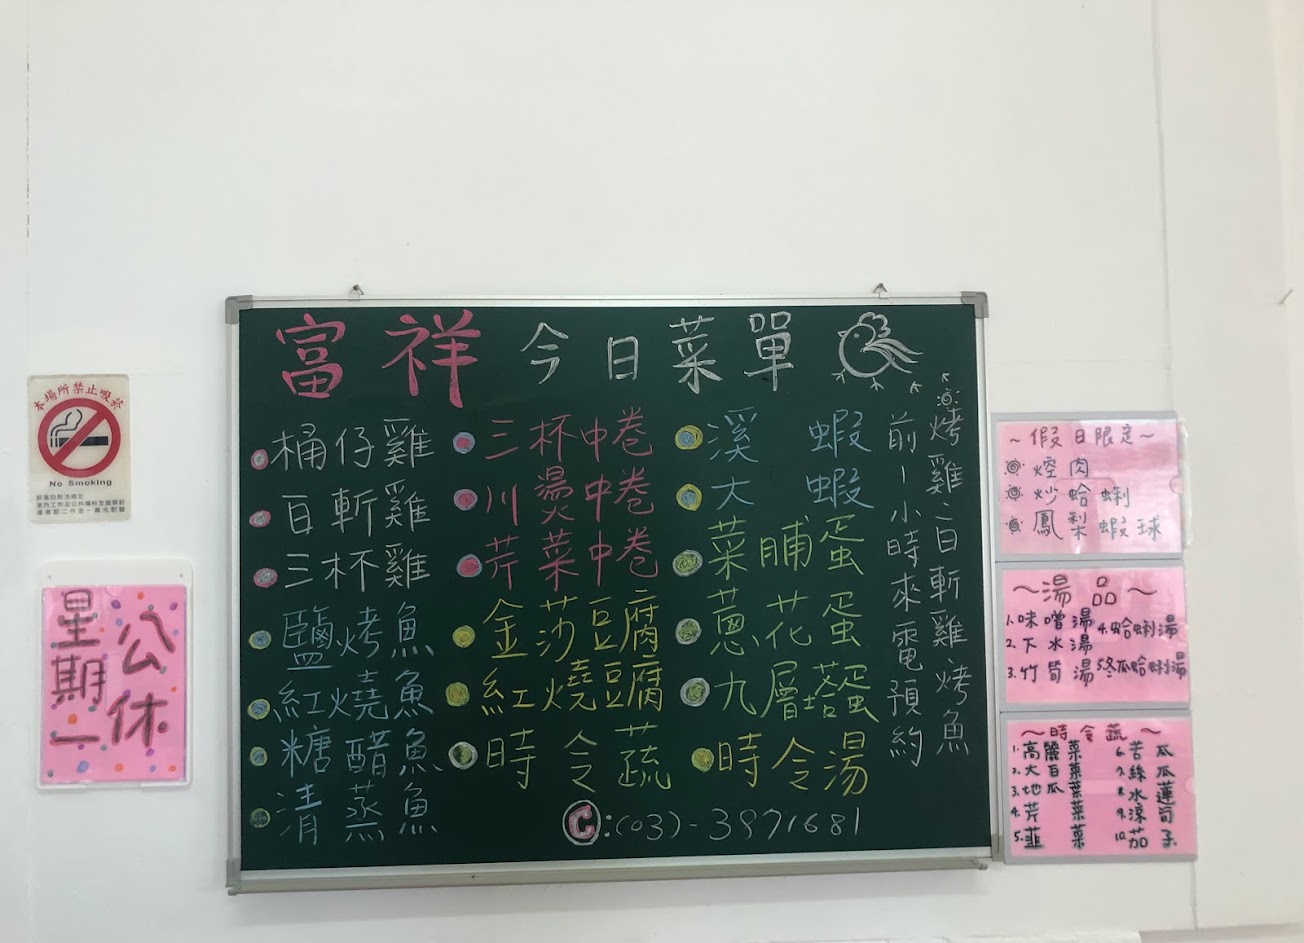 富祥 今日菜單
桶仔雞
白斬雞
三杯雞
鹽烤魚
紅燒魚
糖醋魚
清蒸魚
三杯中卷
川燙中卷
芹菜中卷
金莎豆腐
紅燒豆腐
時令蔬
溪蝦
大蝦
菜脯蛋
蔥花蛋
九層塔蛋
時令湯
烤雞、白斬雞、烤魚
前1小時來電預約
C:(03)-3871681
本場所禁止吸菸
No Smoking
星期一
公休
~假日限定~
焢肉
炒蛤蜊
鳳梨蝦球
~湯品~
1.味噌湯
2.下水湯
3.竹筍湯
4.蛤蜊湯
5.冬瓜蛤蜊湯
~時令蔬~
1.高麗菜
2.大白菜
3.地瓜葉
4.芹菜
5.韮菜
6.苦瓜
7.絲瓜
8.水蓮
9.涼筍
10.茄子